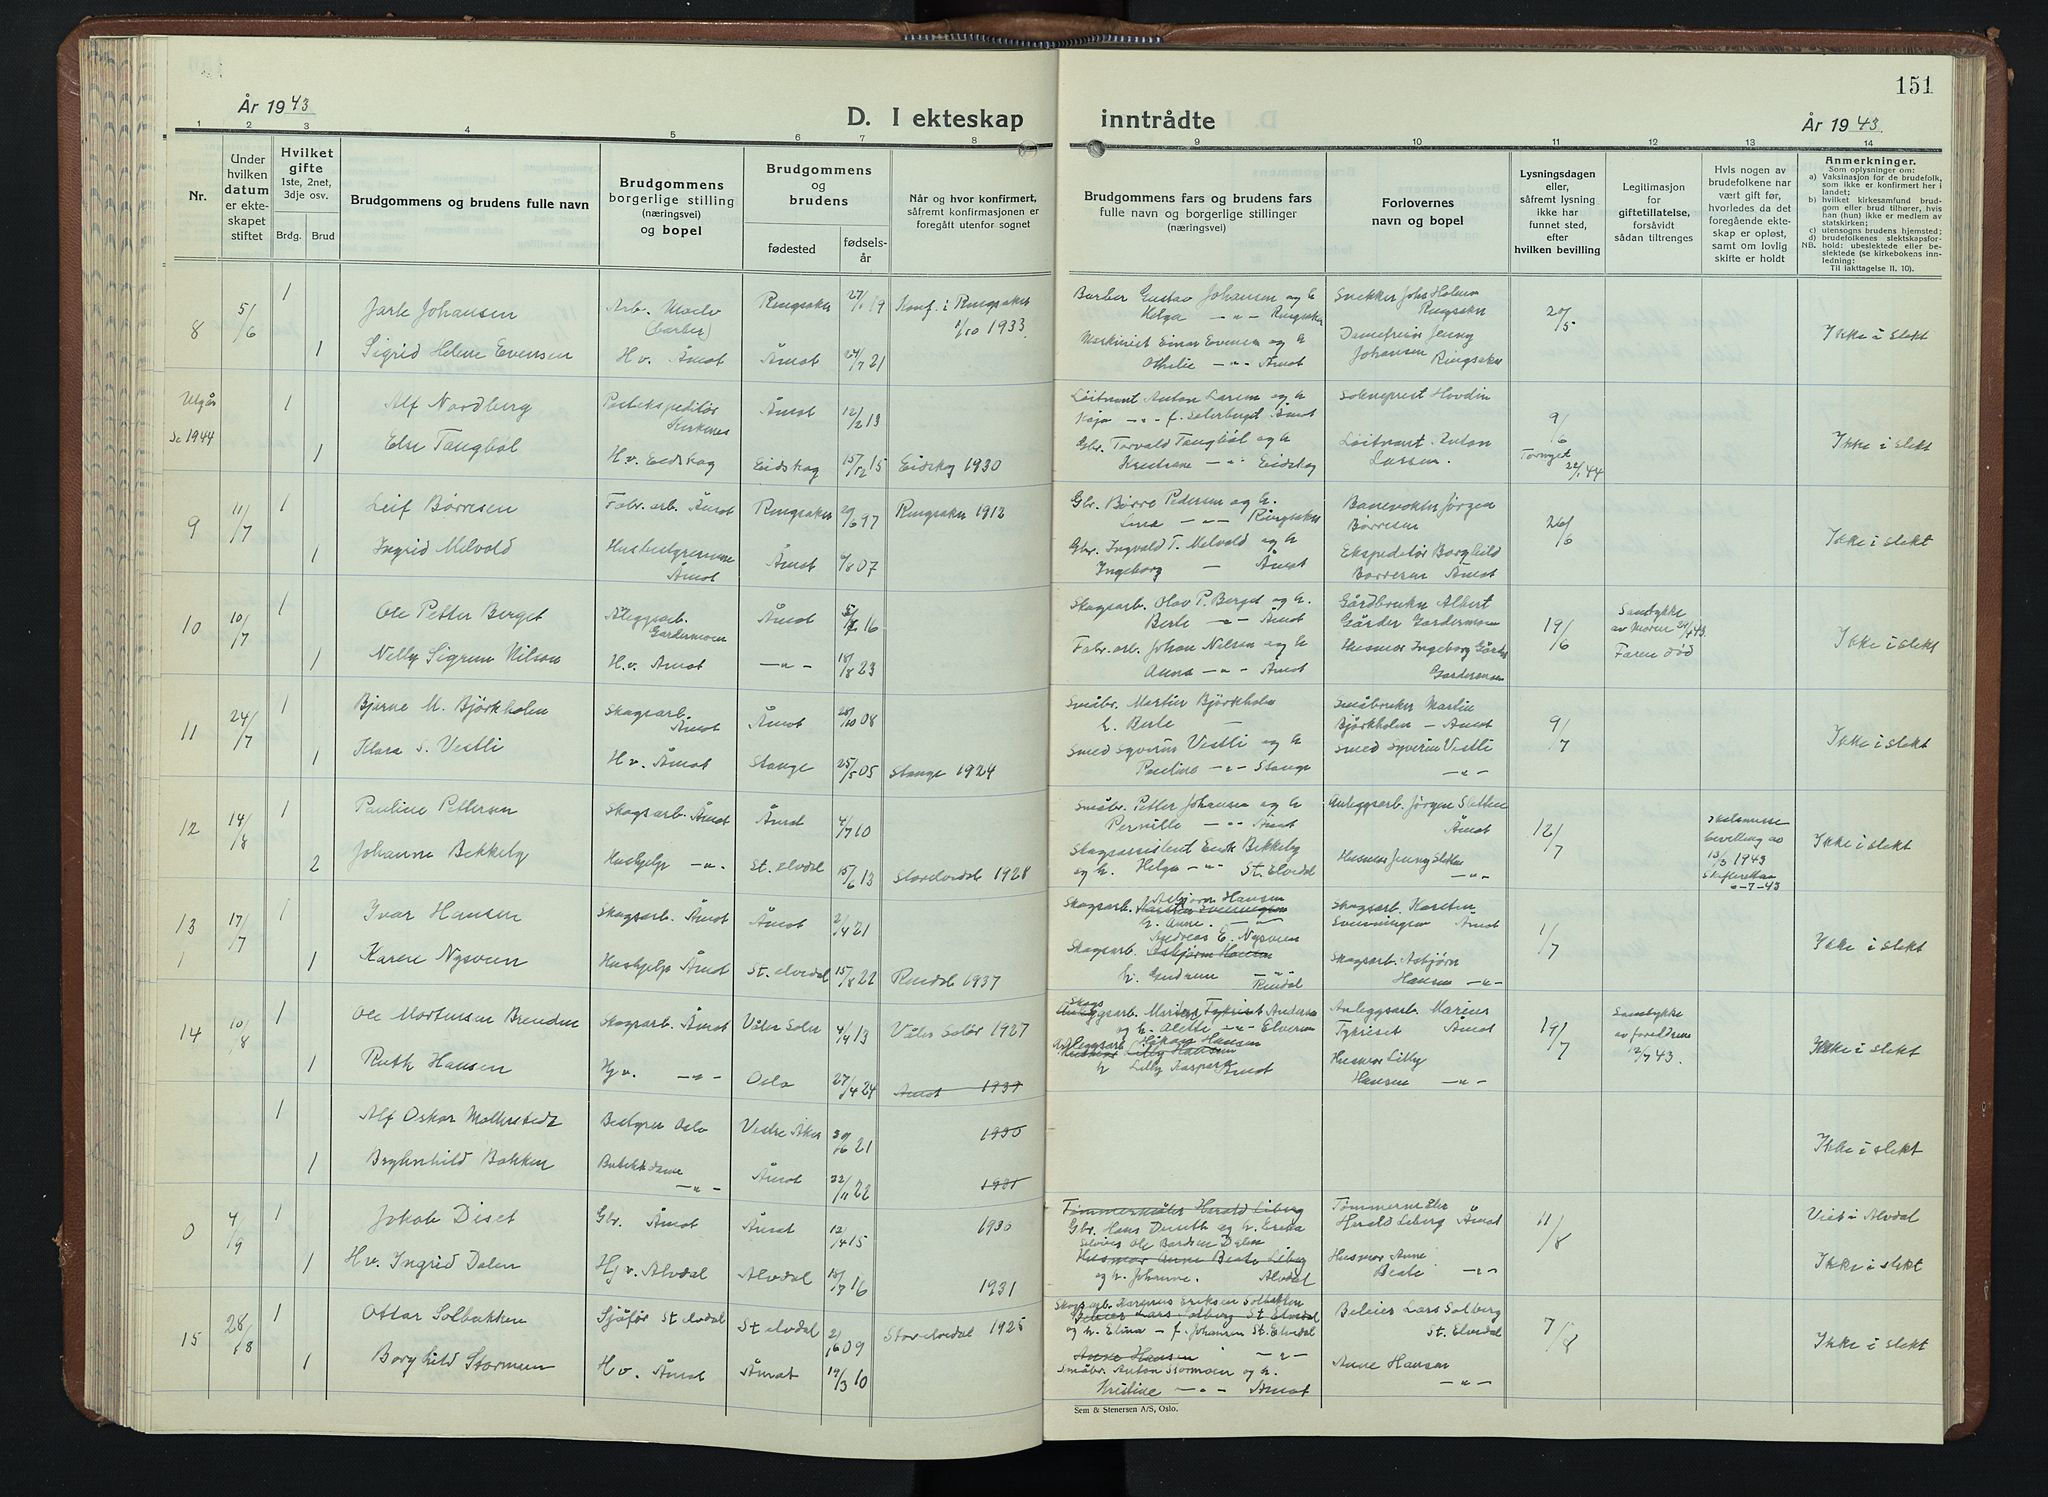 År 1943
D. I ekteskap
inntrådte
151
År 1943.
1 2 3 4 5 6 7 8 9 10 11 12 13 14
Nr.
Under hvilken datum er ekteskapet stiftet
Hvilket gifte
1ste, 2net, 3dje osv.
Brdg. Brud
Brudgommens og brudens fulle navn
Brudgommens borgerlige stilling (næringsvei) og bopel
Brudgommens og brudens
fødested
fødselsår
Når og hvor konfirmert,
såfremt konfirmasjonen er
foregått utenfor sognet
Brudgommens fars og brudens fars
fulle navn og borgerlige stillinger
(næringsvei)
Forlovernes
navn og bopel
Lysningsdagen
eller,
såfremt lysning
ikke har
funnet sted,
efter
hvilken bevilling
Legitimasjon
for
giftetillatelse,
forsåvidt
sådan tiltrenges
Hvis nogen av
brudefolkene har
vært gift før,
hvorledes da det
foregående ekteskap er opløst,
samt om lovlig
skifte er holdt
Anmerkninger.
Som oplysninger om:
a) Vaksinasjon for de brudefolk, som ikke er konfirmert her i landet;
b) hvilket kirkesamfund brudgom eller brud tilhører, hvis han (hun) ikke er medlem av statskirken;
c) utensogns brudens hjemsted;
d) brudefolkenes slektskapsforhold: ubeslektede eller beslektede (se kirkebokens innledning:
NB. Til iakttagelse II. 10).
8 5/6 1 Jarle Johansen Arb. Moelv (barber) Ringsaker 27/1 19 Konf. i Ringsaker 1/10 1933. Barber Gustav Johansen og h. Helga -"- Ringsaker Snekker Johs Holmen Ringsaker 20/5
1 Sigrid Helene Evensen H.v. Åmot Åmot 24/7 21 Maskinist Einar Evensen og h Othilie -"- Åmot Damefrisør Jenny Johansen Ringsaker Ikke i slekt
Utgår
Se 1944
1 Alf Nordberg Postekspeditør Kirkenes Åmot 12/2 13 Løitnant Anton Larsen og h Kaja -"- f. Seterberget Åmot Sokneprest Hovdin 9/6
1 Else Tangbøl H.v. Eidskog Eidskog 15/12 15 Eidskog 1930 Gbr. Torvald Tangbøl og h Kristiane -"- Eidskog Løitnant Anton Larsen. 22/1 44 Ikke i slekt
9 11/7 1 Leif Børresen Fabr. arb. Åmot Ringsaker 20/6 97 Ringsaker 1912 Gbr. Børre Pedersen og h. Lina -"- Ringsaker Banevokter Jørgen Børresen 26/6
1 Ingrid Melvold Husbestyrerinne Åmot Åmot 6/8 07 Gbr. Ingvald T. Melvold og h Ingeborg - Åmot Ekspeditør Borghild Børresen Åmot Ikke i slekt
10 10/7 1 Ole Petter Berget Anleggsarb. Gardermoen Åmot 16 Skogsarb. Olav P. Berget og h. Berte -"- Åmot Gårdbruker Albert Gårder Gardermoen 19/6 Samtykke av moren 43. Faren død
1 Nelly Sigrun Nilsen H.v. Åmot -"- 18/8 23 Fabr. arb. Johan Nilsen og h Anna -"- Åmot Husmor Ingeborg Gårder Gardermoen Ikke i slekt
11 24/7 1 Bjarne M. Bjørkholen Skogsarb. Åmot Åmot 28/10 08 Småbr. Martin Bjørkholm h. Berte - Småbruker Martin Bjørkholm - Åmot 9/7
1 Klara S. Vestli H.v. Åmot Stange 25/5 05 Stange 1924 Smed Syverin Vestli og h Pauline -"- Stange Smed Syverin Vestli -"- Ikke i slekt
12 14/8 1 Pauline Pettersen Skogsarb. Åmot Åmot 4/7 10 Småbr. Petter Johansen og h Pernille -"- Åmot Anleggsarb. Jørgen Sletten Åmot 12/7 Skilsmisse bevilling av 13/3 1943 Skifteretten 6-7-43
2 Johanne Bekkely Hushjelp -"- St. elvdal 15/6 13 Storelvedal 1928 Skogsassistent Erik Bekkely og h. Helga -"- St. Elvdal Husmor Jenny Sletten -"- Ikke i slekt
13 17/7 1 Ivar Hansen Skogsarb. Åmot Åmot 2/4 21 Skogsarb. Asbjørn Hansen h. Anne. -"- Skogsarb. Karsten Svenningsen Åmot 1/7
1 1 Karen Nysveen Hushjelp Åmot St. elvdal 15/8 22 Rendal 1937 Skogsarb. Andreas E. Nysveen Asbjørn Hansen h. Gudrun -"- Rendal Skogsarb. Asbjørn Hansen -"- Ikke i slekt
14 10/8 1 Ole Mortensen Brenden Skogsarb. Åmot Våler Solør 4/4 13 Våler Solør 1927 og h. Alette -"- Elverum Anleggsarb. Marius Tykriset Åmot 19/7 Samtykke av foreldrene 12/7 43.
1 Ruth Hansen Hj v. -"- Oslo 27/4 24 Åmot 1939 Anleggsarb. Håkon Hansen Husmor Lilly Hansen h Lilly Kaspara Åmot Husmor Lilly Hansen -"- Ikke i slekt
1 Alf Oskar Bestyrer Oslo Vestre Aker 30/6 21 1935
1 Brynhild Bakken Butikkdame -"- Åmot 22/11 22 Ikke i slekt
0 4/9 1 Jakob Diset Gbr. Åmot Åmot 12/4 15 1930 Tømmermåler Harald Liberg Gbr. Hans og h. Tømmermåler Harald Liberg Åmot 11/8 Viet i Alvdal
1 H.v. Ingrid Dalen Hj v. Alvdal Alvdal 18/7 16 1931 Ole Bardsen Dalen Husmor Anne Beate Liberg og h. Johanne. Alvdal Husmor Anne Beate -"- Ikke i slekt
15 28/8 1 Ottar Solbakken Sjåfør St elvdal St elvdal 2/6 09 Storelvedal 1925 Skogsarb. Eriksen Solbakken Beleier Lars Solberg St. Elvdal og h. Elina - f. Johansen St. Elvdal Beleier Lars Solberg St. Elvdal 7/8
1 Borghild Stormoen H.v. Åmot Åmot 19/3 10 Anne Hansen -"- Småbr. Anton Stormoen og h. Kristine -"- Åmot Anne Hansen -"- Ikke i slekt
Sem & Stenersen A/S, Oslo.